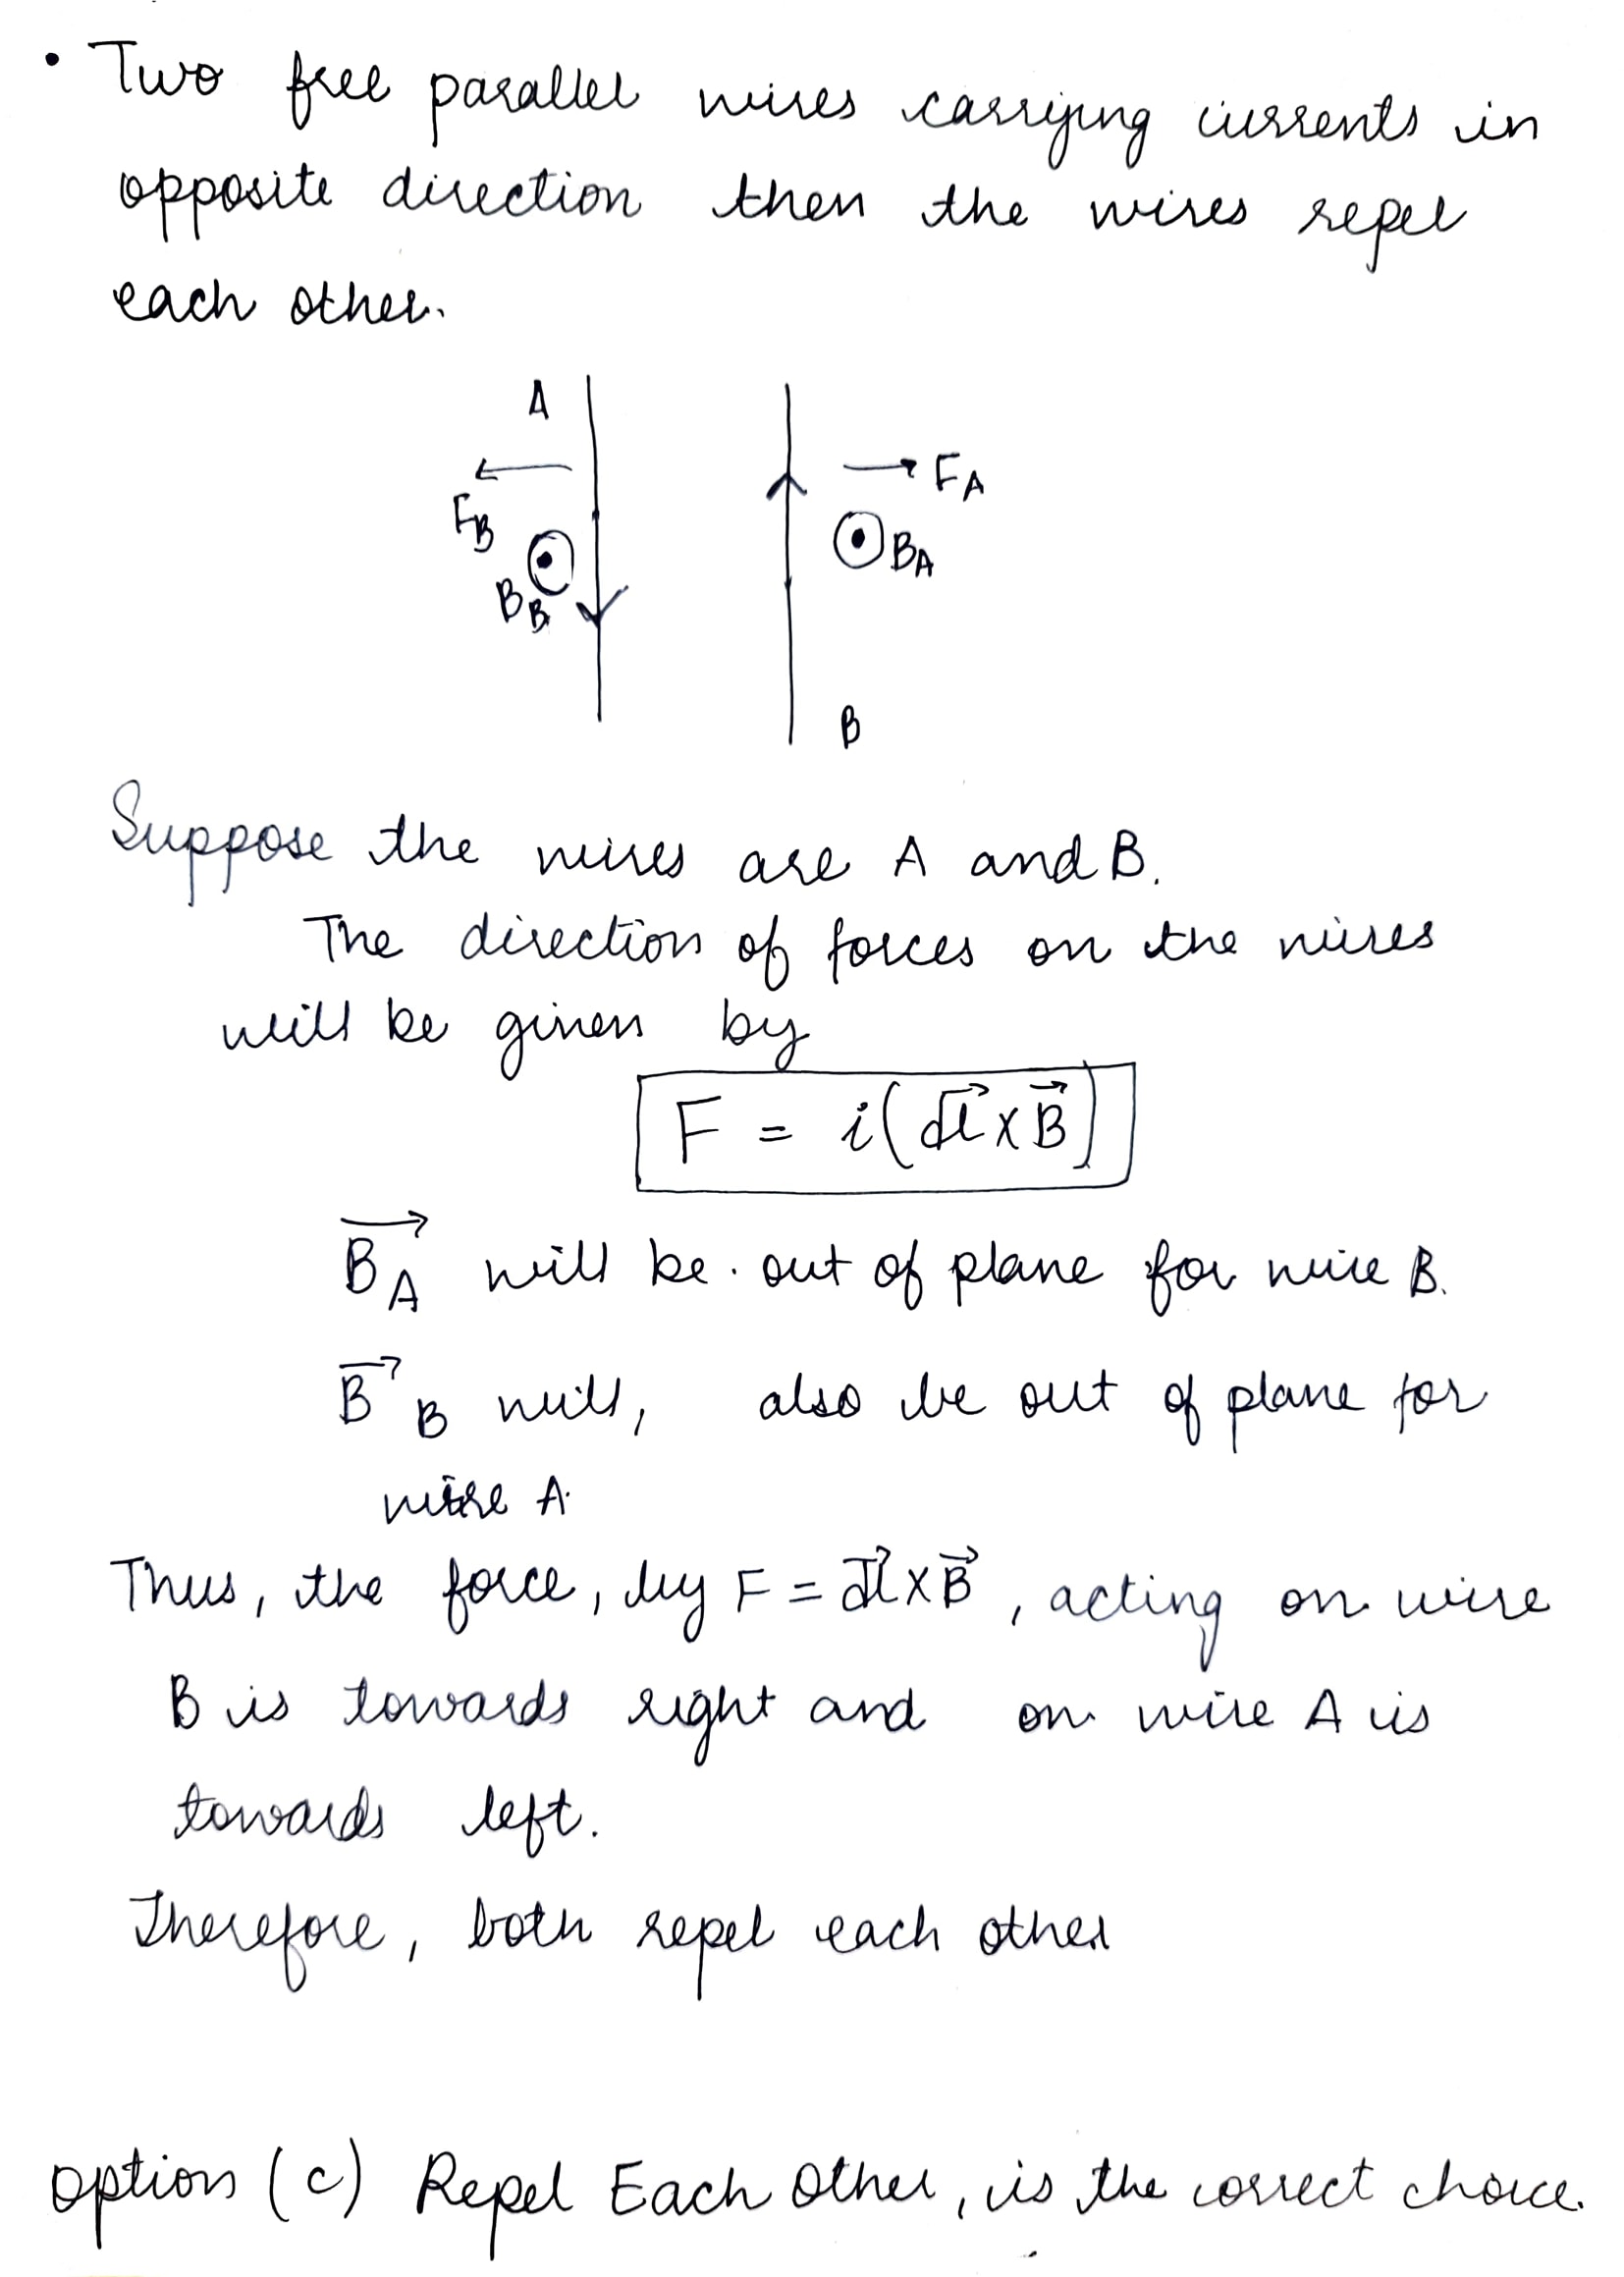 • Two free parallel wires carrying currents in
opposite direction then the wires repel
each other.
A
F_A
F_B
B_A
B_B
B
Suppose the wires are A and B.
The direction of forces on the wires
will be given by
F = i(d\vec{l} × \vec{B})
\vec{B_A} will be out of plane for wire B.
\vec{B}_B will, also be out of plane for
wire A.
Thus, the force, by F = d\vec{l} × \vec{B}, acting on wire
B is towards right and on wire A is
towards left.
Therefore, both repel each other
option (c) Repel Each Other, is the correct choice.